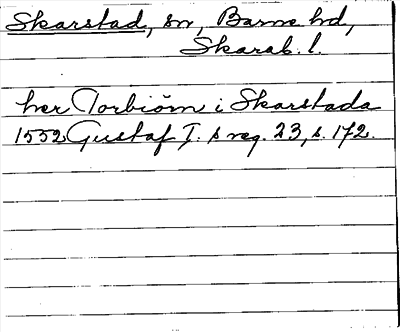 Skarstad, sn, Barne hd,
Skarab. l.
her Torbiörn i Skarstada
1552 Gustaf I:s reg. 23, s. 172.